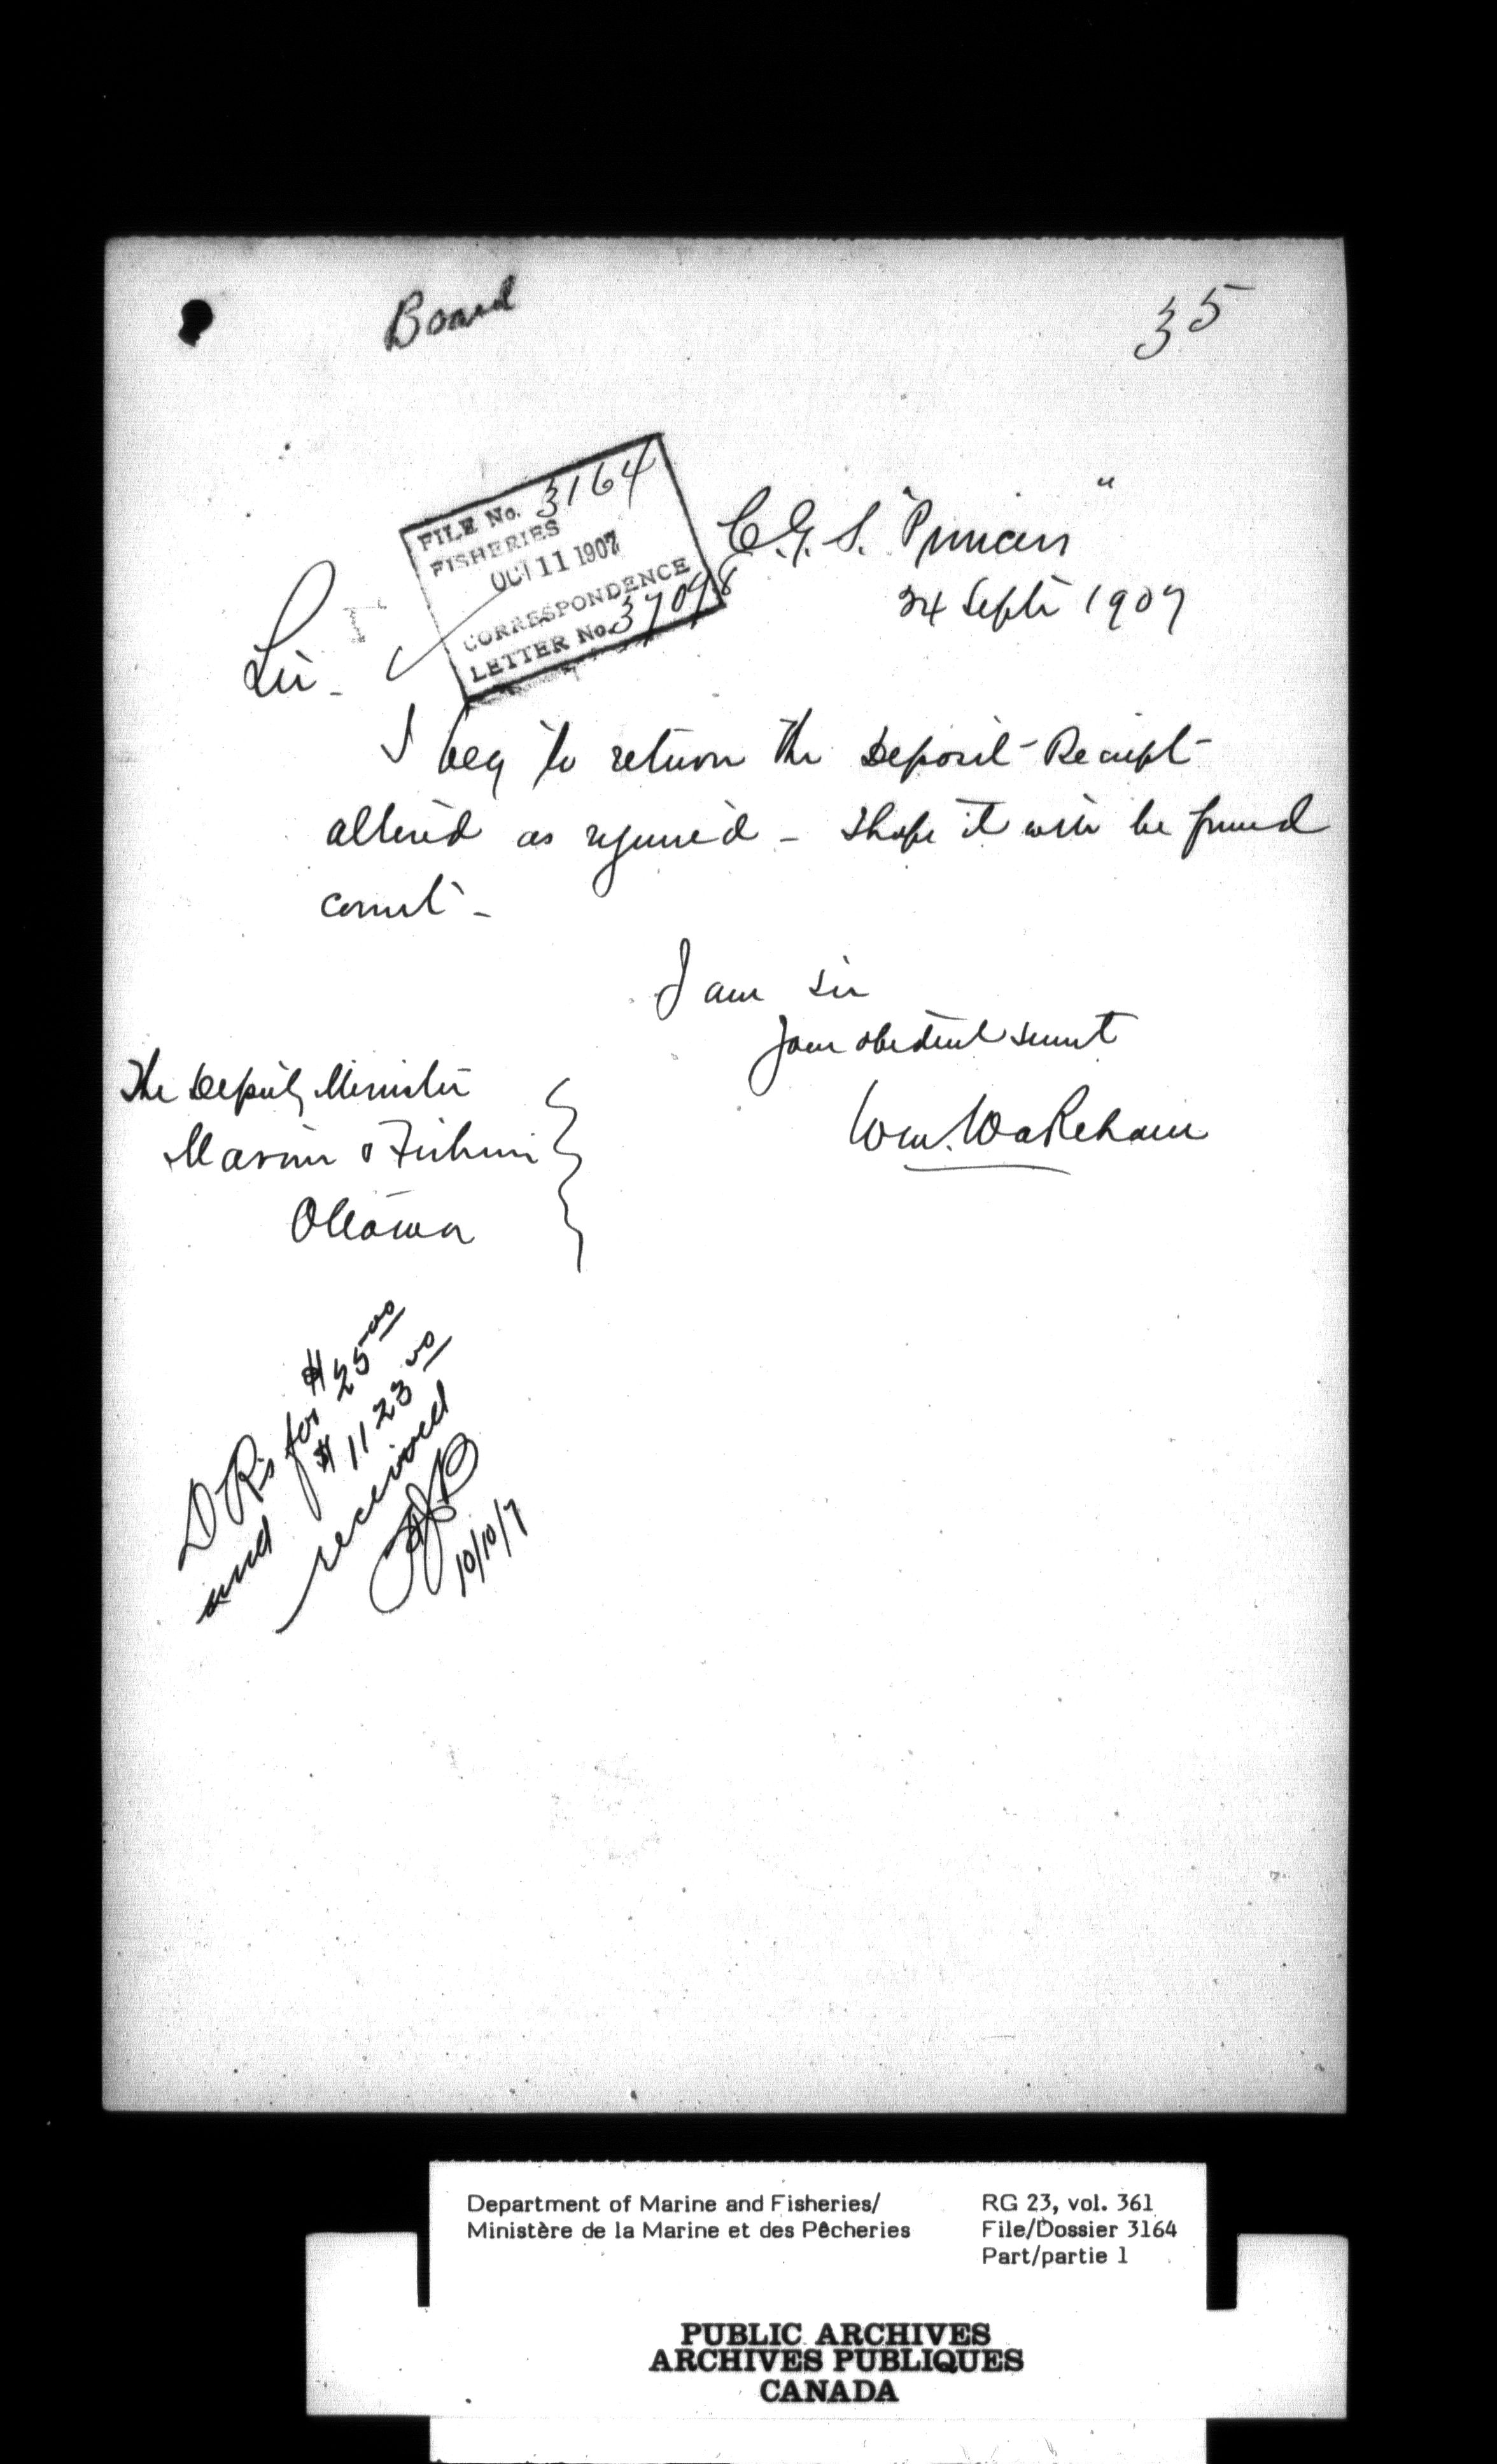 Board
35
FILE No. 3164
FISHERIES
OCT 11 1907
CORRESPONDENCE
LETTER No. 37098
C.G.S. "Princess"
24 Sept 1907
Sir -
I beg to return the Deposit Receipt
altered as required - I hope it will be found
correct -
I am Sir
Your obedient servant
Wm. Wakeham
The Deputy Minister
Marine & Fisheries
Ottawa
DRs for $25.00
and $1123.00
received
10/10/7
Department of Marine and Fisheries/
Ministère de la Marine et des Pêcheries
RG 23, vol. 361
File/Dossier 3164
Part/partie 1
PUBLIC ARCHIVES
ARCHIVES PUBLIQUES
CANADA